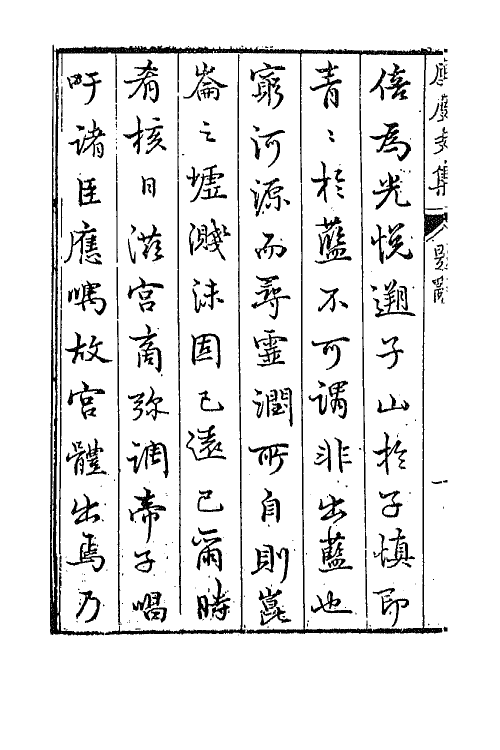 倍為光悅邇子山於子慎即
青〻於藍不可謂非出藍也
窮河源而尋靈潤所自則崑
崙之墟濺沫固已遠已爾時
肴核日滋宮商弥調帝子唱
吁諸臣應喁故宮體出焉乃
題辭
一